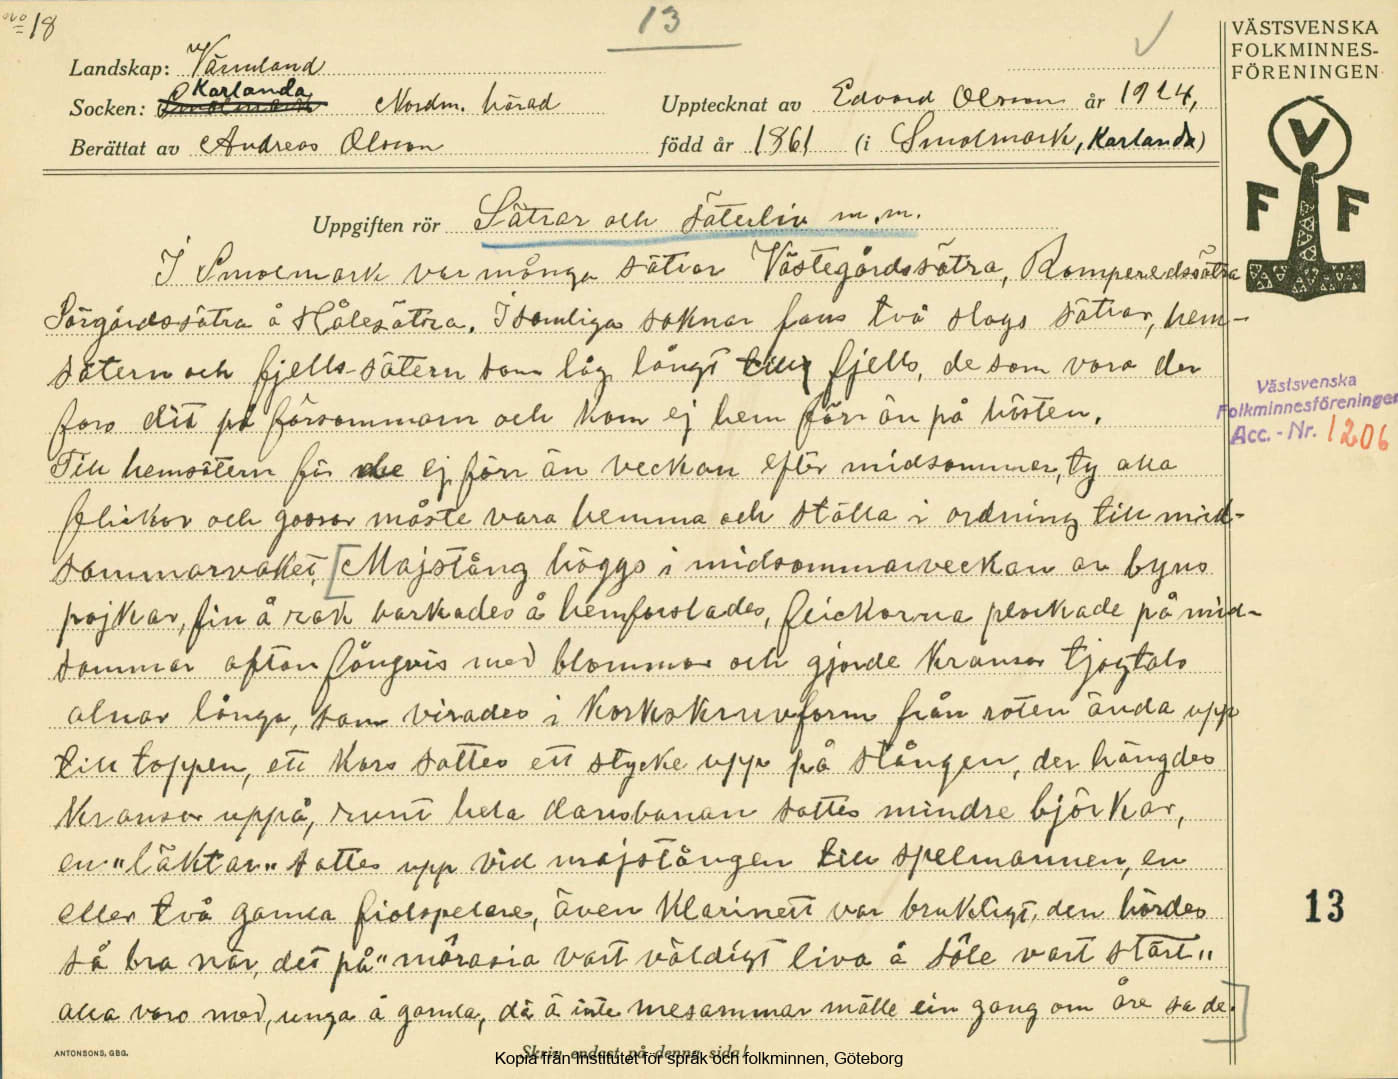 No 18
13
VÄSTSVENSKA
FOLKMINNES-
FÖRENINGEN
Landskap: Värmland
Socken: Karlanda Nordm. härad
Upptecknat av Edvard Olsson år 1924,
Berättat av Andreas Olsson
född år 1861 (i Smolmark, Karlanda)
V
F F
Uppgiften rör Sätrar och säterliv m.m.
I Smolmark var många sätrar Västegårdssätra, Romperedssätra
Sörgårdssätra å Hålesätra. I somliga soknar fans två slags sätrar, hem-
sätern och fjells-sätern som låg långt till fjells, de som vara der
foro dit på försommarn och kom ej hem förr än på hösten.
Till hemsätern för de ej förr än veckan efter midsommer, ty alla
flickor och gossar måste vara hemma och ställa i ordning till mid-
sommarvaket. [Majstång höggs i midsommarveckan av byns
pojkar, fin å rak barkades å hemforslades, flickorna plockade på mid-
sommar afton fångvis med blommor och gjorde kransar tjogtals
alnar långa, som virades i korkskruvform från roten ända upp
till toppen, ett kors sattes ett stycke upp på stången, der hängdes
kransar uppå, runt hela dansbanan sattes mindre björkar,
en "läktar" sattes upp vid majstången till spelmannen, en
eller två gamla fiolspelare, även klarinett var brukligt, den hördes
så bra när, det på "mörasia vart väldigt liva å söle vart stört"
alla varo med, unga å gamla, då ä inte mesammar mälle ein gang om åre sa de.]
Västsvenska
Folkminnesföreningen
Acc. - Nr. 1206
13
ANTONSONS, GBG.
Skriv endast på denna sida!
Kopia från Institutet för språk och folkminnen, Göteborg